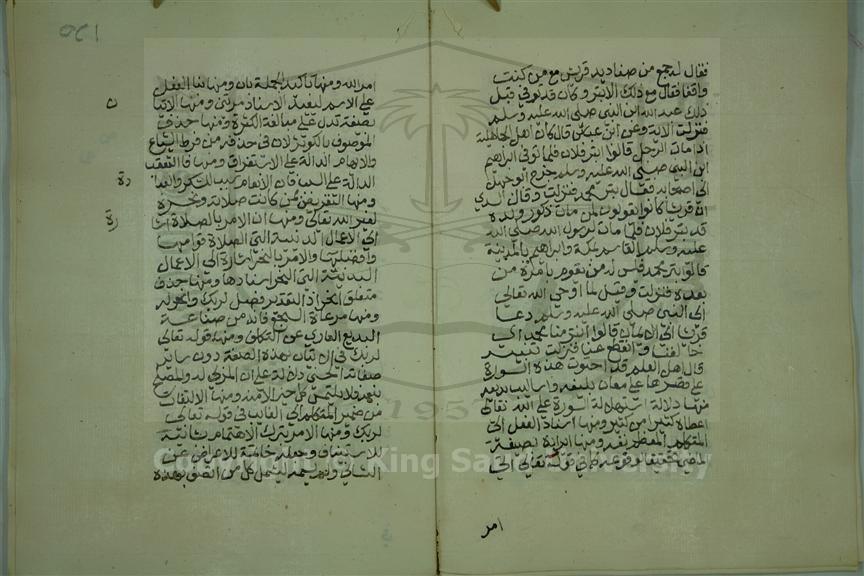 فقال له جمع من صناديد قريش مع من كنت
واقفا فقال مع ذلك الابتر وكان قد توفي قبل
ذلك عبد الله ابن النبي صلى الله عليه وسلم
فنزلت الاية وعن ابن عباس قال كان اهل الجاهلية
اذا مات الرجل قالوا ابتر فلان فلما توفي ابراهيم
ابن النبي صلى الله عليه وسلم خرج ابو جهل
الى اصحابه فقال بتر محمد فنزلت وقال السدي
ان قريشا كانوا يقولون لمن مات ذكور ولده
قد بتر فلان فلما مات لرسول الله صلى الله
عليه وسلم القاسم بمكة وابراهيم بالمدينة
قالوا بتر محمد فليس له من يقوم بامره من
بعده فنزلت وقيل لما اوحى الله تعالى
الى النبي صلى الله عليه وسلم دعا
قريشا الى الايمان قالوا ابتر منا محمد اي
خالفنا وانقطع عنا فنزلت
قال اهل العلم قد احتوت هذه السورة
على قصرها على معان بليغة واساليب بديعة
منها دلالة استهلال السورة على انه تعالى
اعطاه كثيرا من كثير ومنها اسناد الفعل الى
المتكلم المعظم نفسه ومنها ايراده بصيغة
الماضي تحقيقا لوقوعه كما في قوله تعالى اتى
امر
١٢٥
امر الله ومنها تاكيد الجملة بان ومنها بنا الفعل
على الاسم ليفيد الاسناد مرتين ومنها الاتيان
بصيغة تدل على مبالغة الكثرة ومنها حذف
الموصوف بالكوثر لان في حذفه من فرط الشياع
والابهام الدالة على الاستغراق ومنها فا التعقيب
الدالة على السبب فان الانعام سبب للشكر والعبادة
ومنها التعريض بمن كانت صلاته ونحره
لغير الله تعالى ومنها ان الامر بالصلاة اشارة
الى الاعمال الدينية التي الصلاة قوامها
وافضلها والامر بالنحر اشارة الى الاعمال
البدنية التي النحر اسناها ومنها حذف
متعلق انحر اذ التقدير فصل لربك وانحر له
ومنها مراعاة السجع فانه من صناعة
البديع العاري عن التكلف ومنها قوله تعالى
لربك في الاتيان بهذه الصفة دون سائر
صفاته الحسنى دلالة على ان المربي له والمصلح
بنعمه فلا يلتمس كل خير الا منه ومنها الالتفات
من ضمير المتكلم الى الغائب في قوله تعالى
لربك ومنها الامر بترك الاهتمام بشانيه
للاستيناف وجعله خاتمة للاعراض عن
الشاني ولم يسمه ليشمل كل من اتصف بهذه
ن
دة
رة
1957
King Saud University